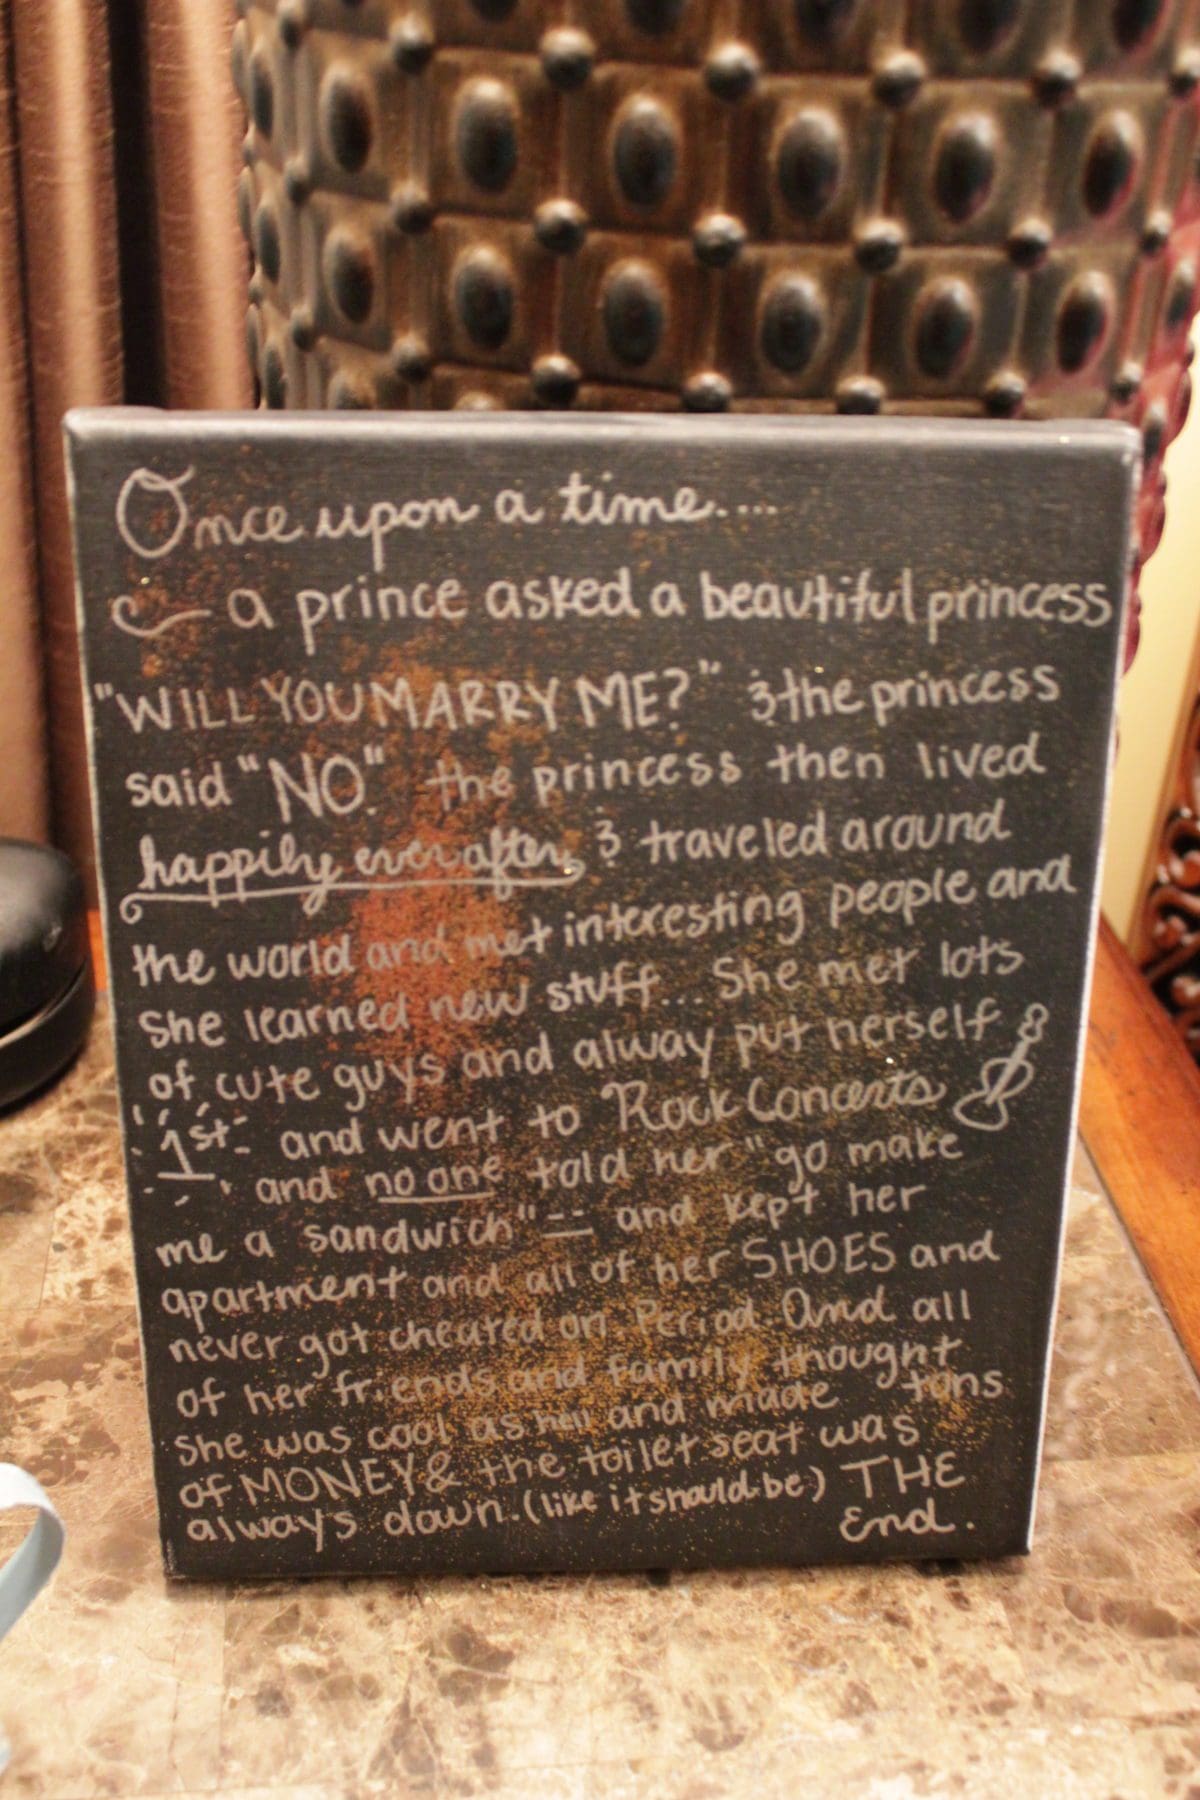 Once upon a time....
a prince asked a beautiful princess
"WILL YOU MARRY ME?" & the princess
said "NO." the princess then lived
happily ever after, & traveled around
the world and met interesting people and
she learned new stuff... She met lots
of cute guys and alway put herself
1st and went to Rock Concerts
and no one told her "go make
me a sandwich" -- and kept her
apartment and all of her SHOES and
never got cheated on. Period. And all
of her friends and family thought
she was cool as hell and made tons
of MONEY & the toilet seat was
always down. (like it should be) THE
End.